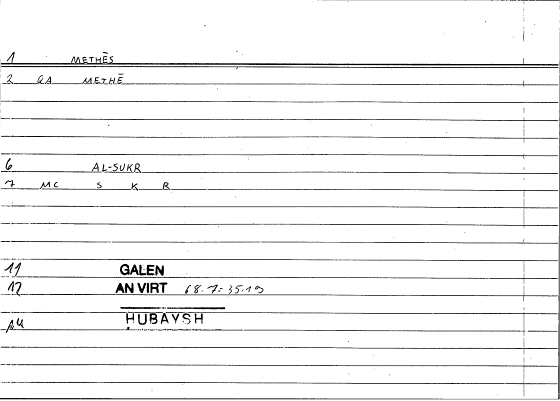 1 METHĒS
2 GA METHĒ
6 AL-SUKR
7 MC S K R
11 GALEN
12 AN VIRT 68.7=35.19
14 ḤUBAYSH